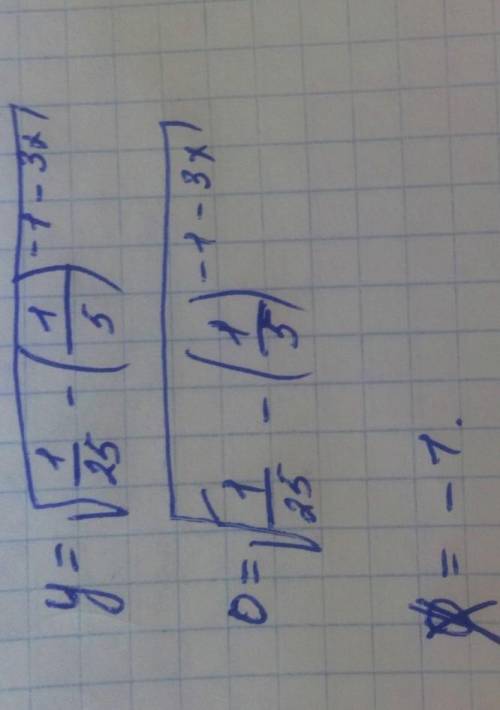 y = √(1/25 - (1/5)^(-1-3x))
0 = √(1/25 - (1/5)^(-1-3x))
= -1.